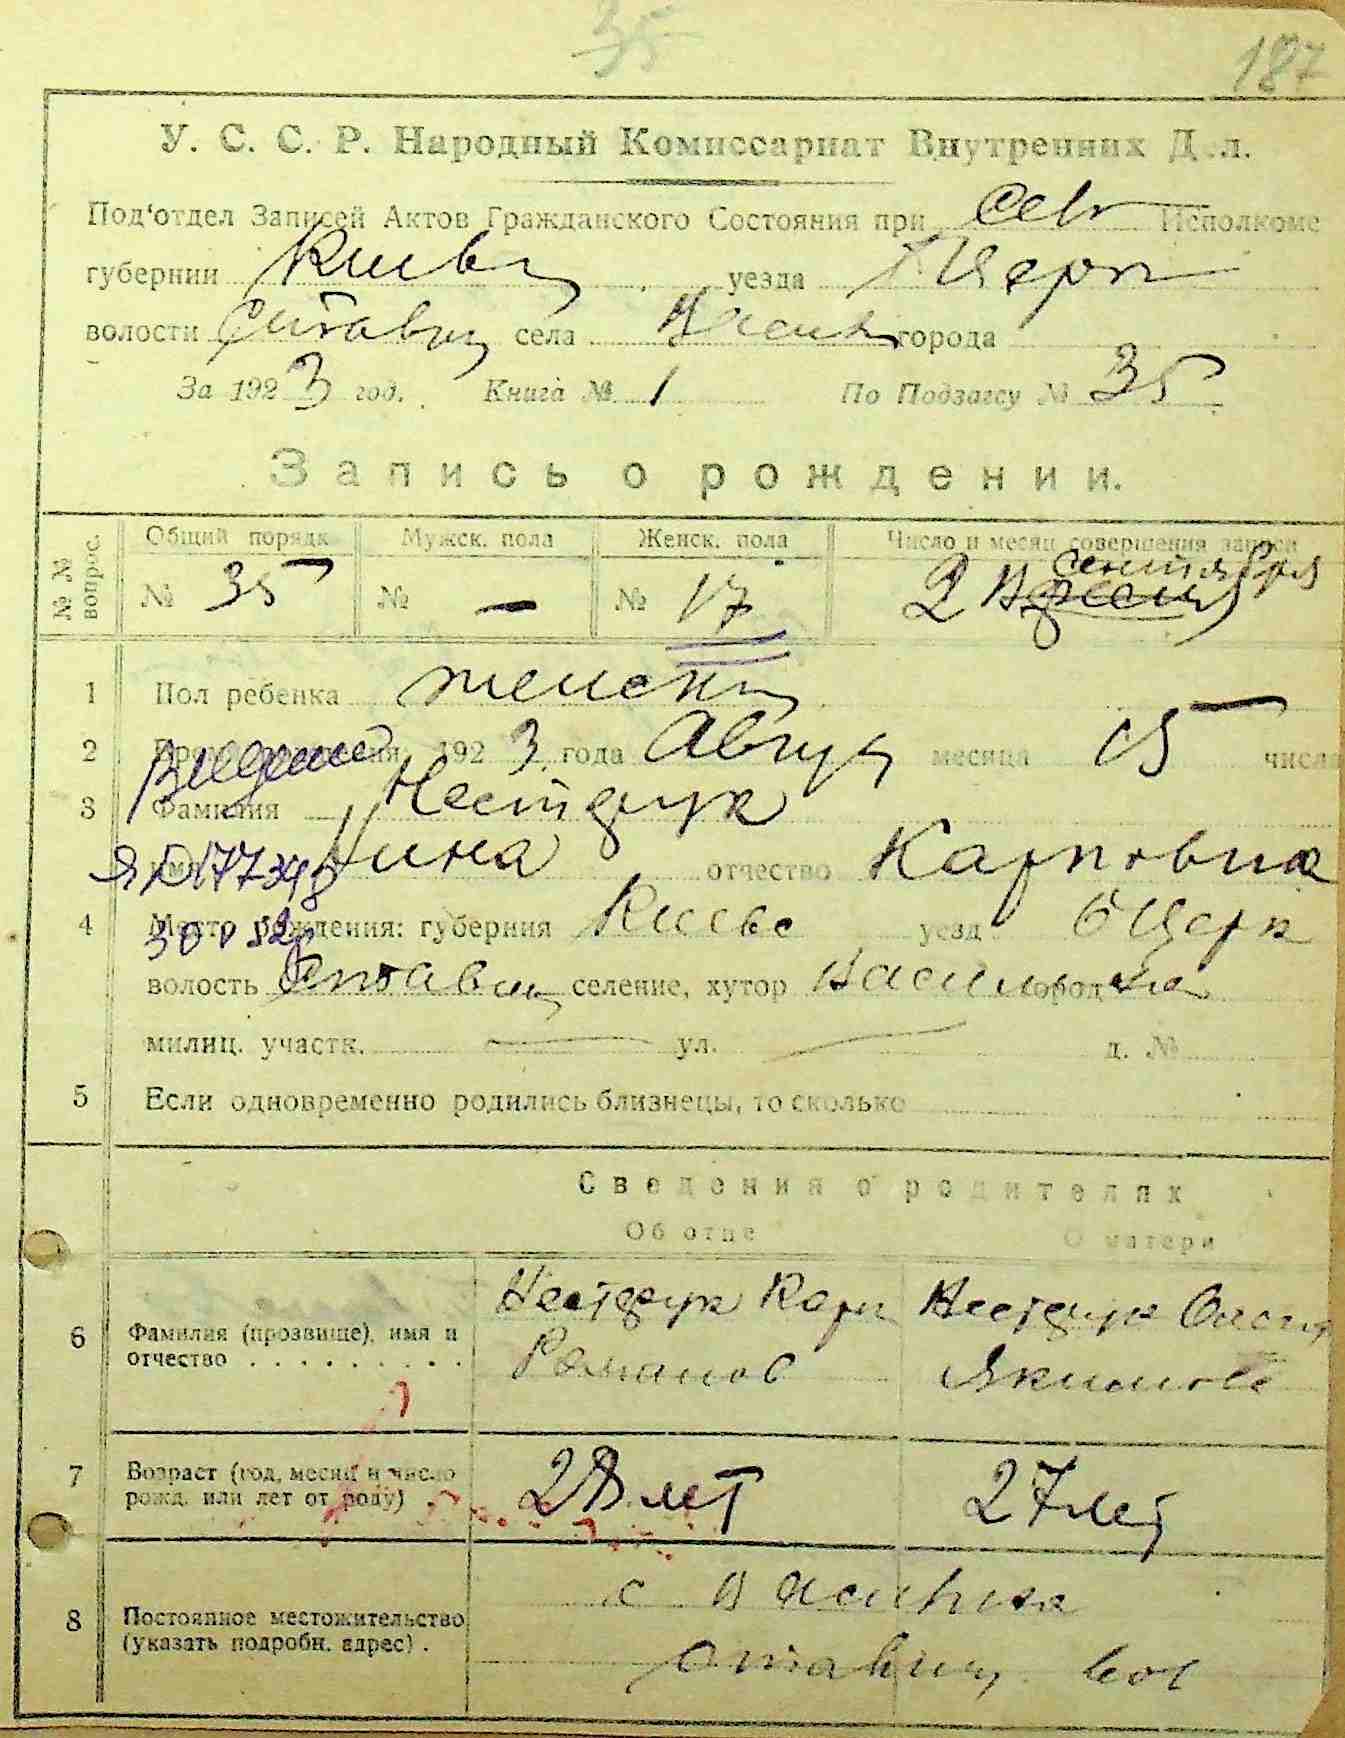 35
187
У. С. С. Р. Народный Комиссариат Внутренних Дел.
Под'отдел Записей Актов Гражданского Состояния при Исполкоме
губернии Киевс уезда Б Церк
волости Ставищ села Васил города
За 1923 год. Книга № 1 По Подзагсу № 35
Запись о рождении.
№ № вопрос. Общий порядк Мужск. пола Женск. пола Число и месяц совершения записи
№ 35 № — № 17 2 сентября
1 Пол ребенка женск
2 192 3 года Август месяца 15 числа
3 Фамилия Нестерук
Нина отчество Карповна
4 Место рождения: губерния Киевс уезд Б Церк
волость Ставищ селение, хутор Василиха город
милиц. участк. — ул. — д. №
5 Если одновременно родились близнецы, то сколько
Сведения о родителях
Об отце О матери
6 Фамилия (прозвище), имя и отчество . . . . . . . . . . Нестерук Карп Романов Нестерук Якимов
7 Возраст (год, месяц и число рожд. или лет от роду) 28 лет 27 лет
8 Постоянное местожительство (указать подробн. адрес) . с Василиха
Ставищ вол